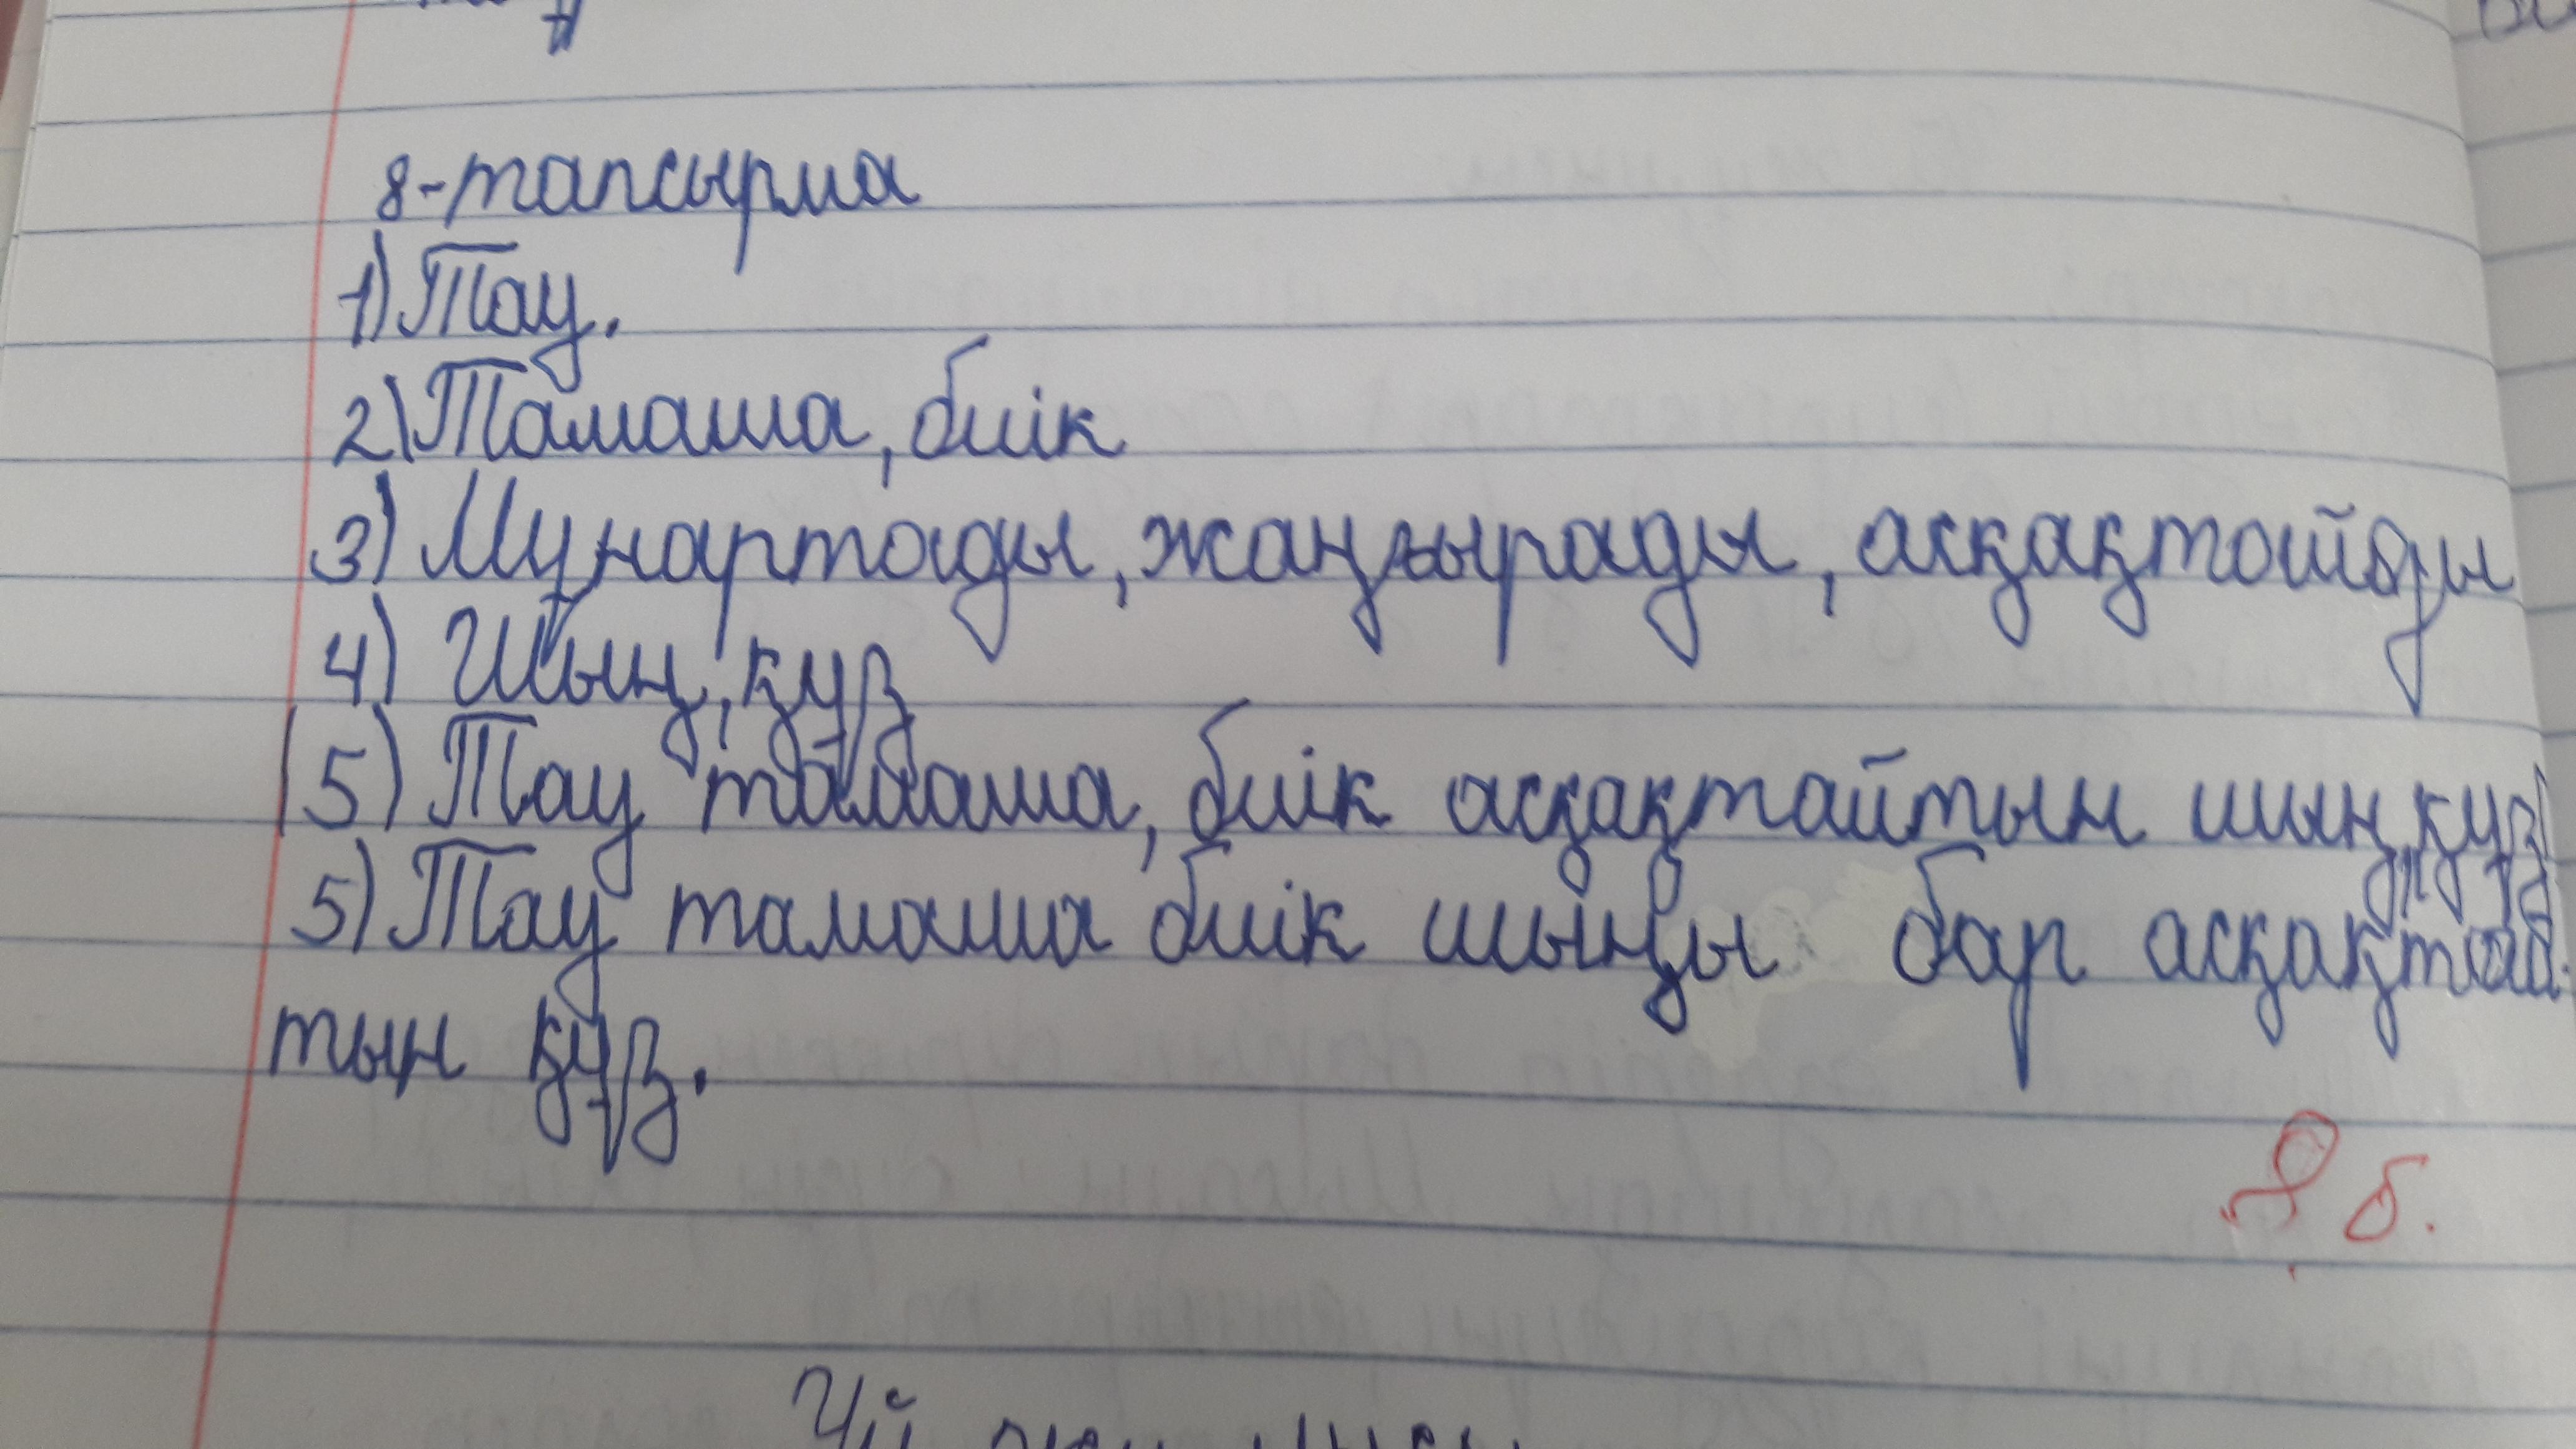 8-тапсырма
1) Тау.
2) Тамаша, биік
3) Мұнартады, жаңғырады, асқақтайды
4) Шың, құз
(5) Тау тамаша, биік асқақтайтын шың, құз)
5) Тау тамаша биік шыңы бар асқақтай-
тын құз.
8 б.
Үй